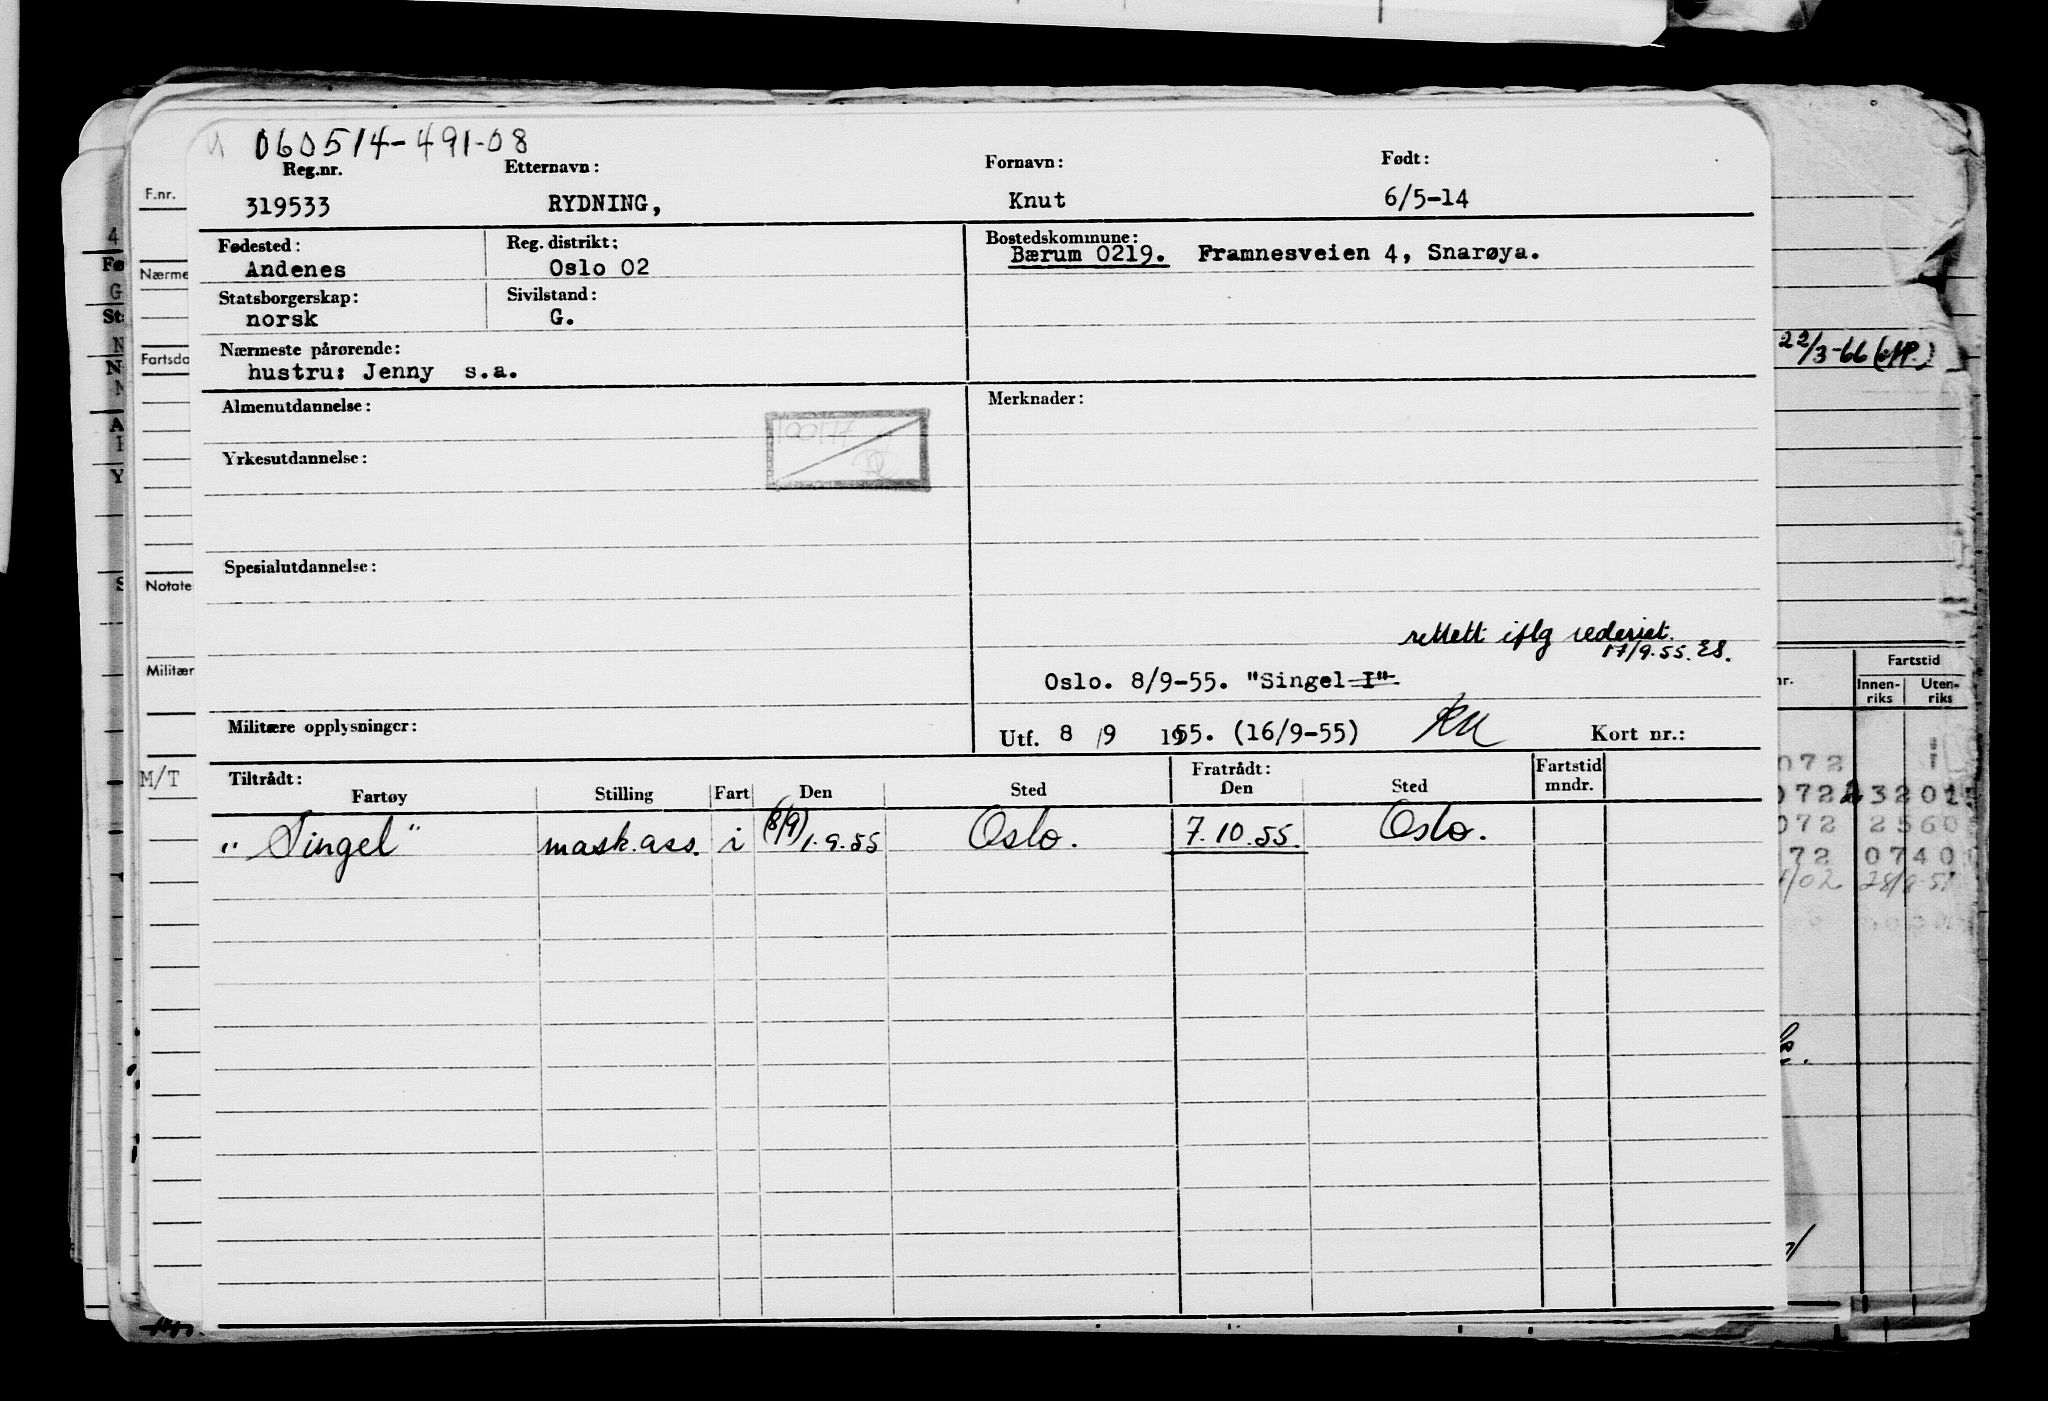 060514-491-08
Reg.nr. Etternavn: Fornavn: Født:
319533 RYDNING, Knut 6/5-14
Fødested: Reg. distrikt: Bostedskommune:
Andenes Oslo 02 Bærum 0219. Framnesveien 4, Snarøya.
Statsborgerskap: Sivilstand:
norsk G.
Nærmeste pårørende:
hustru: Jenny s.a.
Almenutdannelse: Merknader:
Yrkesutdannelse:
Spesialutdannelse:
rettett iflg rederiet.
17/9.55. ES.
Oslo. 8/9-55. "Singel I"
Militære opplysninger: Utf. 8/9 1955. (16/9-55) Kort nr.:
Tiltrådt: Fratrådt: Fartstid
Fartøy Stilling Fart Den Sted Den Sted mndr.
"Singel" mask.ass. i (8/9) 1.9.55 Oslo. 7.10.55. Oslo.
F.nr.
Nærme
Fartsda
Notate
Militær
M/T
22/3-66
Fartstid
Innen-riks Uten-riks
072
072 3201
072 2560
72 0740